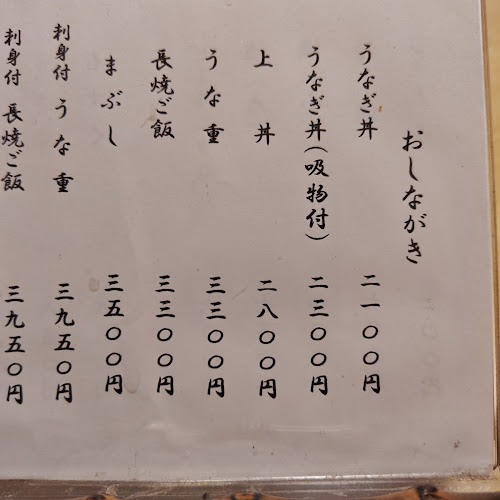 おしながき
うなぎ丼 二一〇〇円
うなぎ丼(吸物付) 二三〇〇円
上丼 二八〇〇円
うな重 三三〇〇円
長焼ご飯 三三〇〇円
まぶし 三五〇〇円
刺身付 うな重 三九五〇円
刺身付 長焼ご飯 三九五〇円